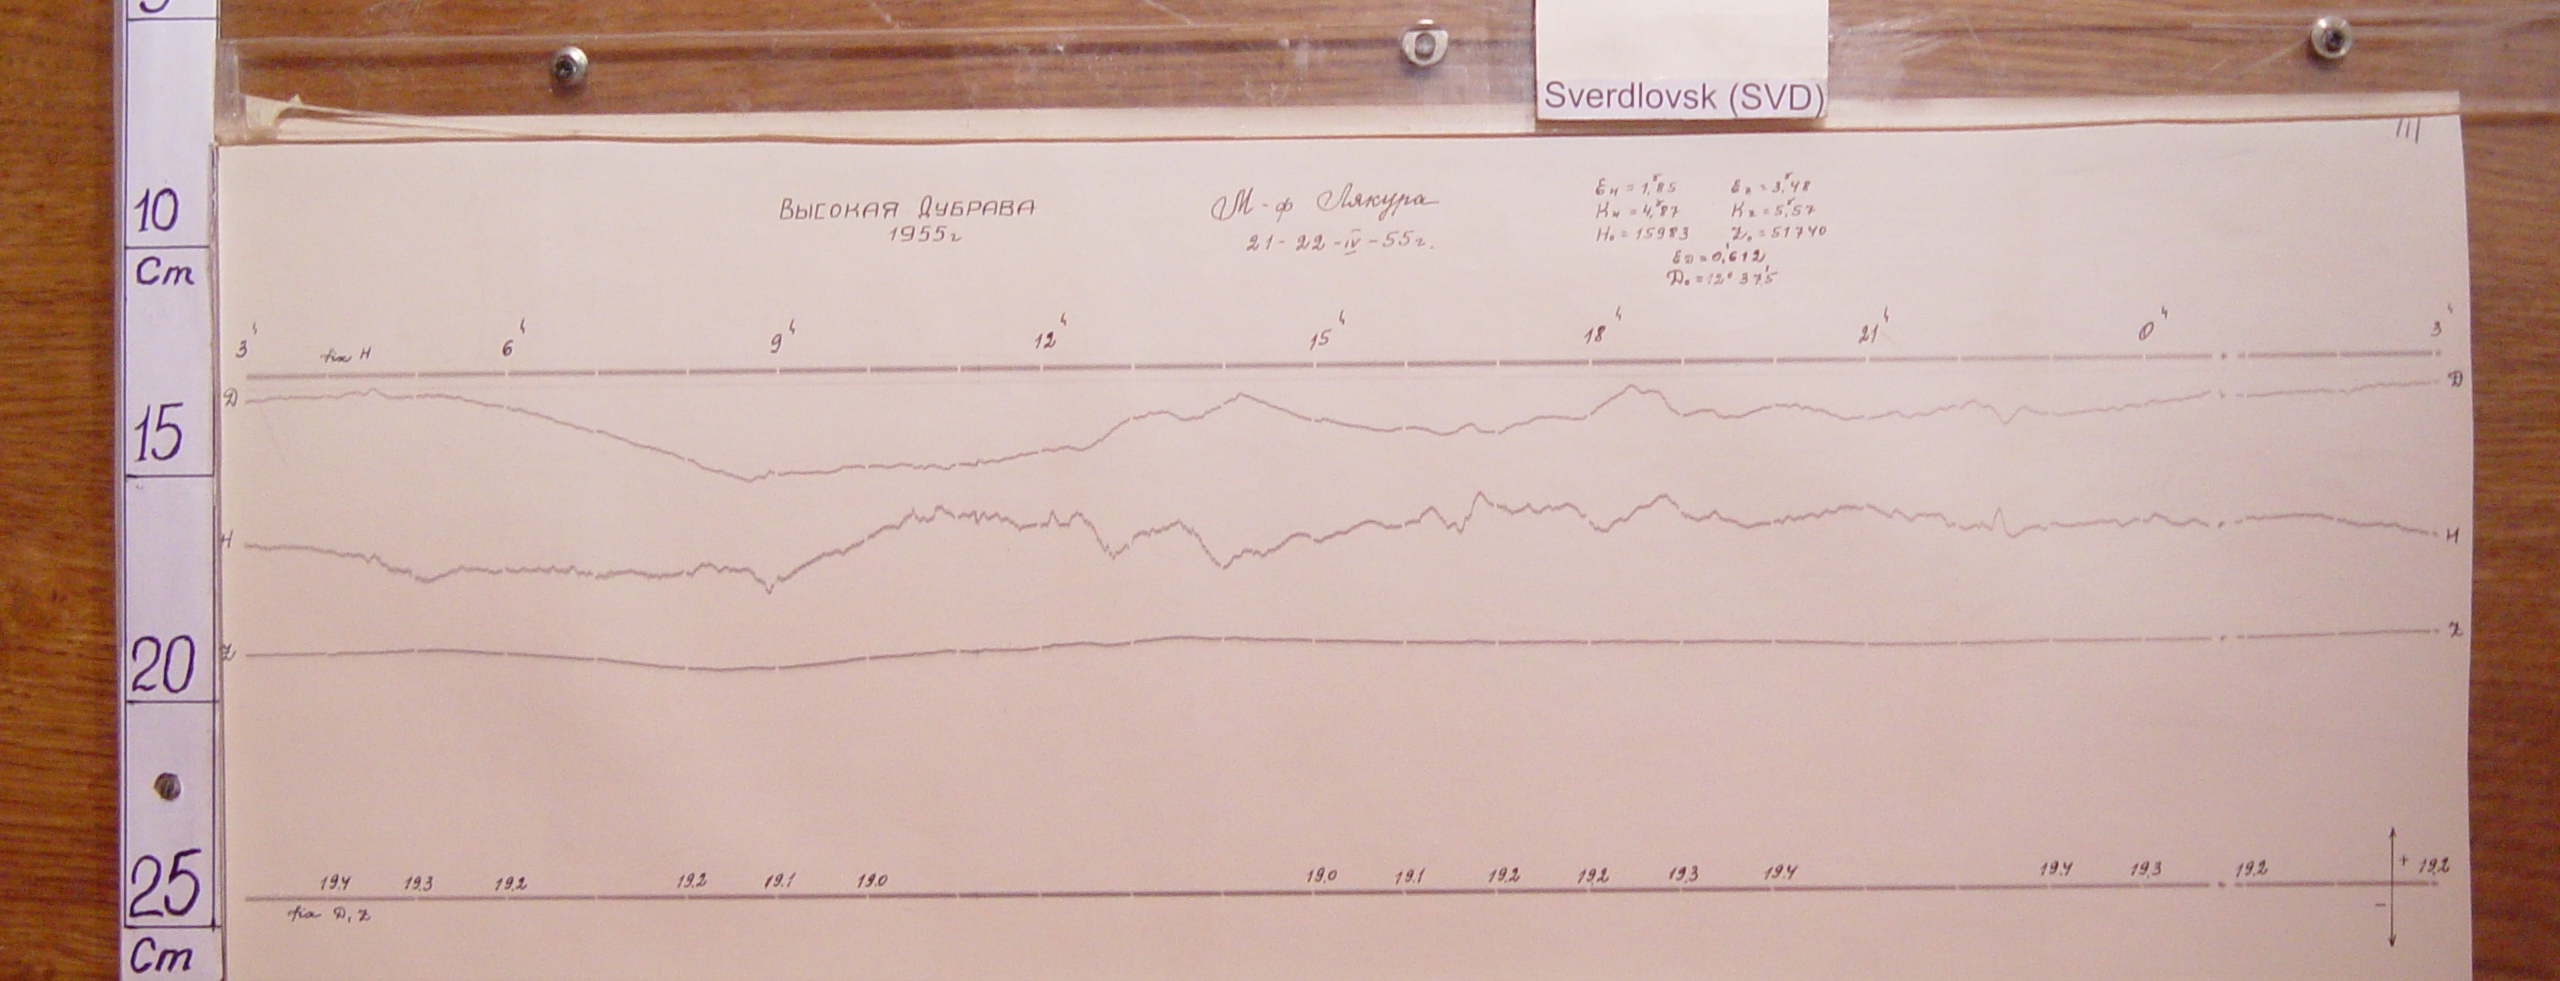 5
Sverdlovsk (SVD)
III
10
Cm
Высокая Дубрава
1955г
М-ф Лякура
21-22-IV-55г.
Ɛн = 1,ˠ85 Ɛz = 3,ˠ48
Kн = 4,ˠ87 Kz = 5,ˠ57
H₀ = 15983 Z₀ = 51740
ƐD = 0,'612
D₀ = 12° 37,'5
3ч 6ч 9ч 12ч 15ч 18ч 21ч 0ч 3ч
fix H
D D
15
H H
20
Z Z
25
19.4 19.3 19.2 19.2 19.1 19.0 19.0 19.1 19.2 19.2 19.3 19.4 19.4 19.3 19.2 + 19.2
fix D, Z −
Cm